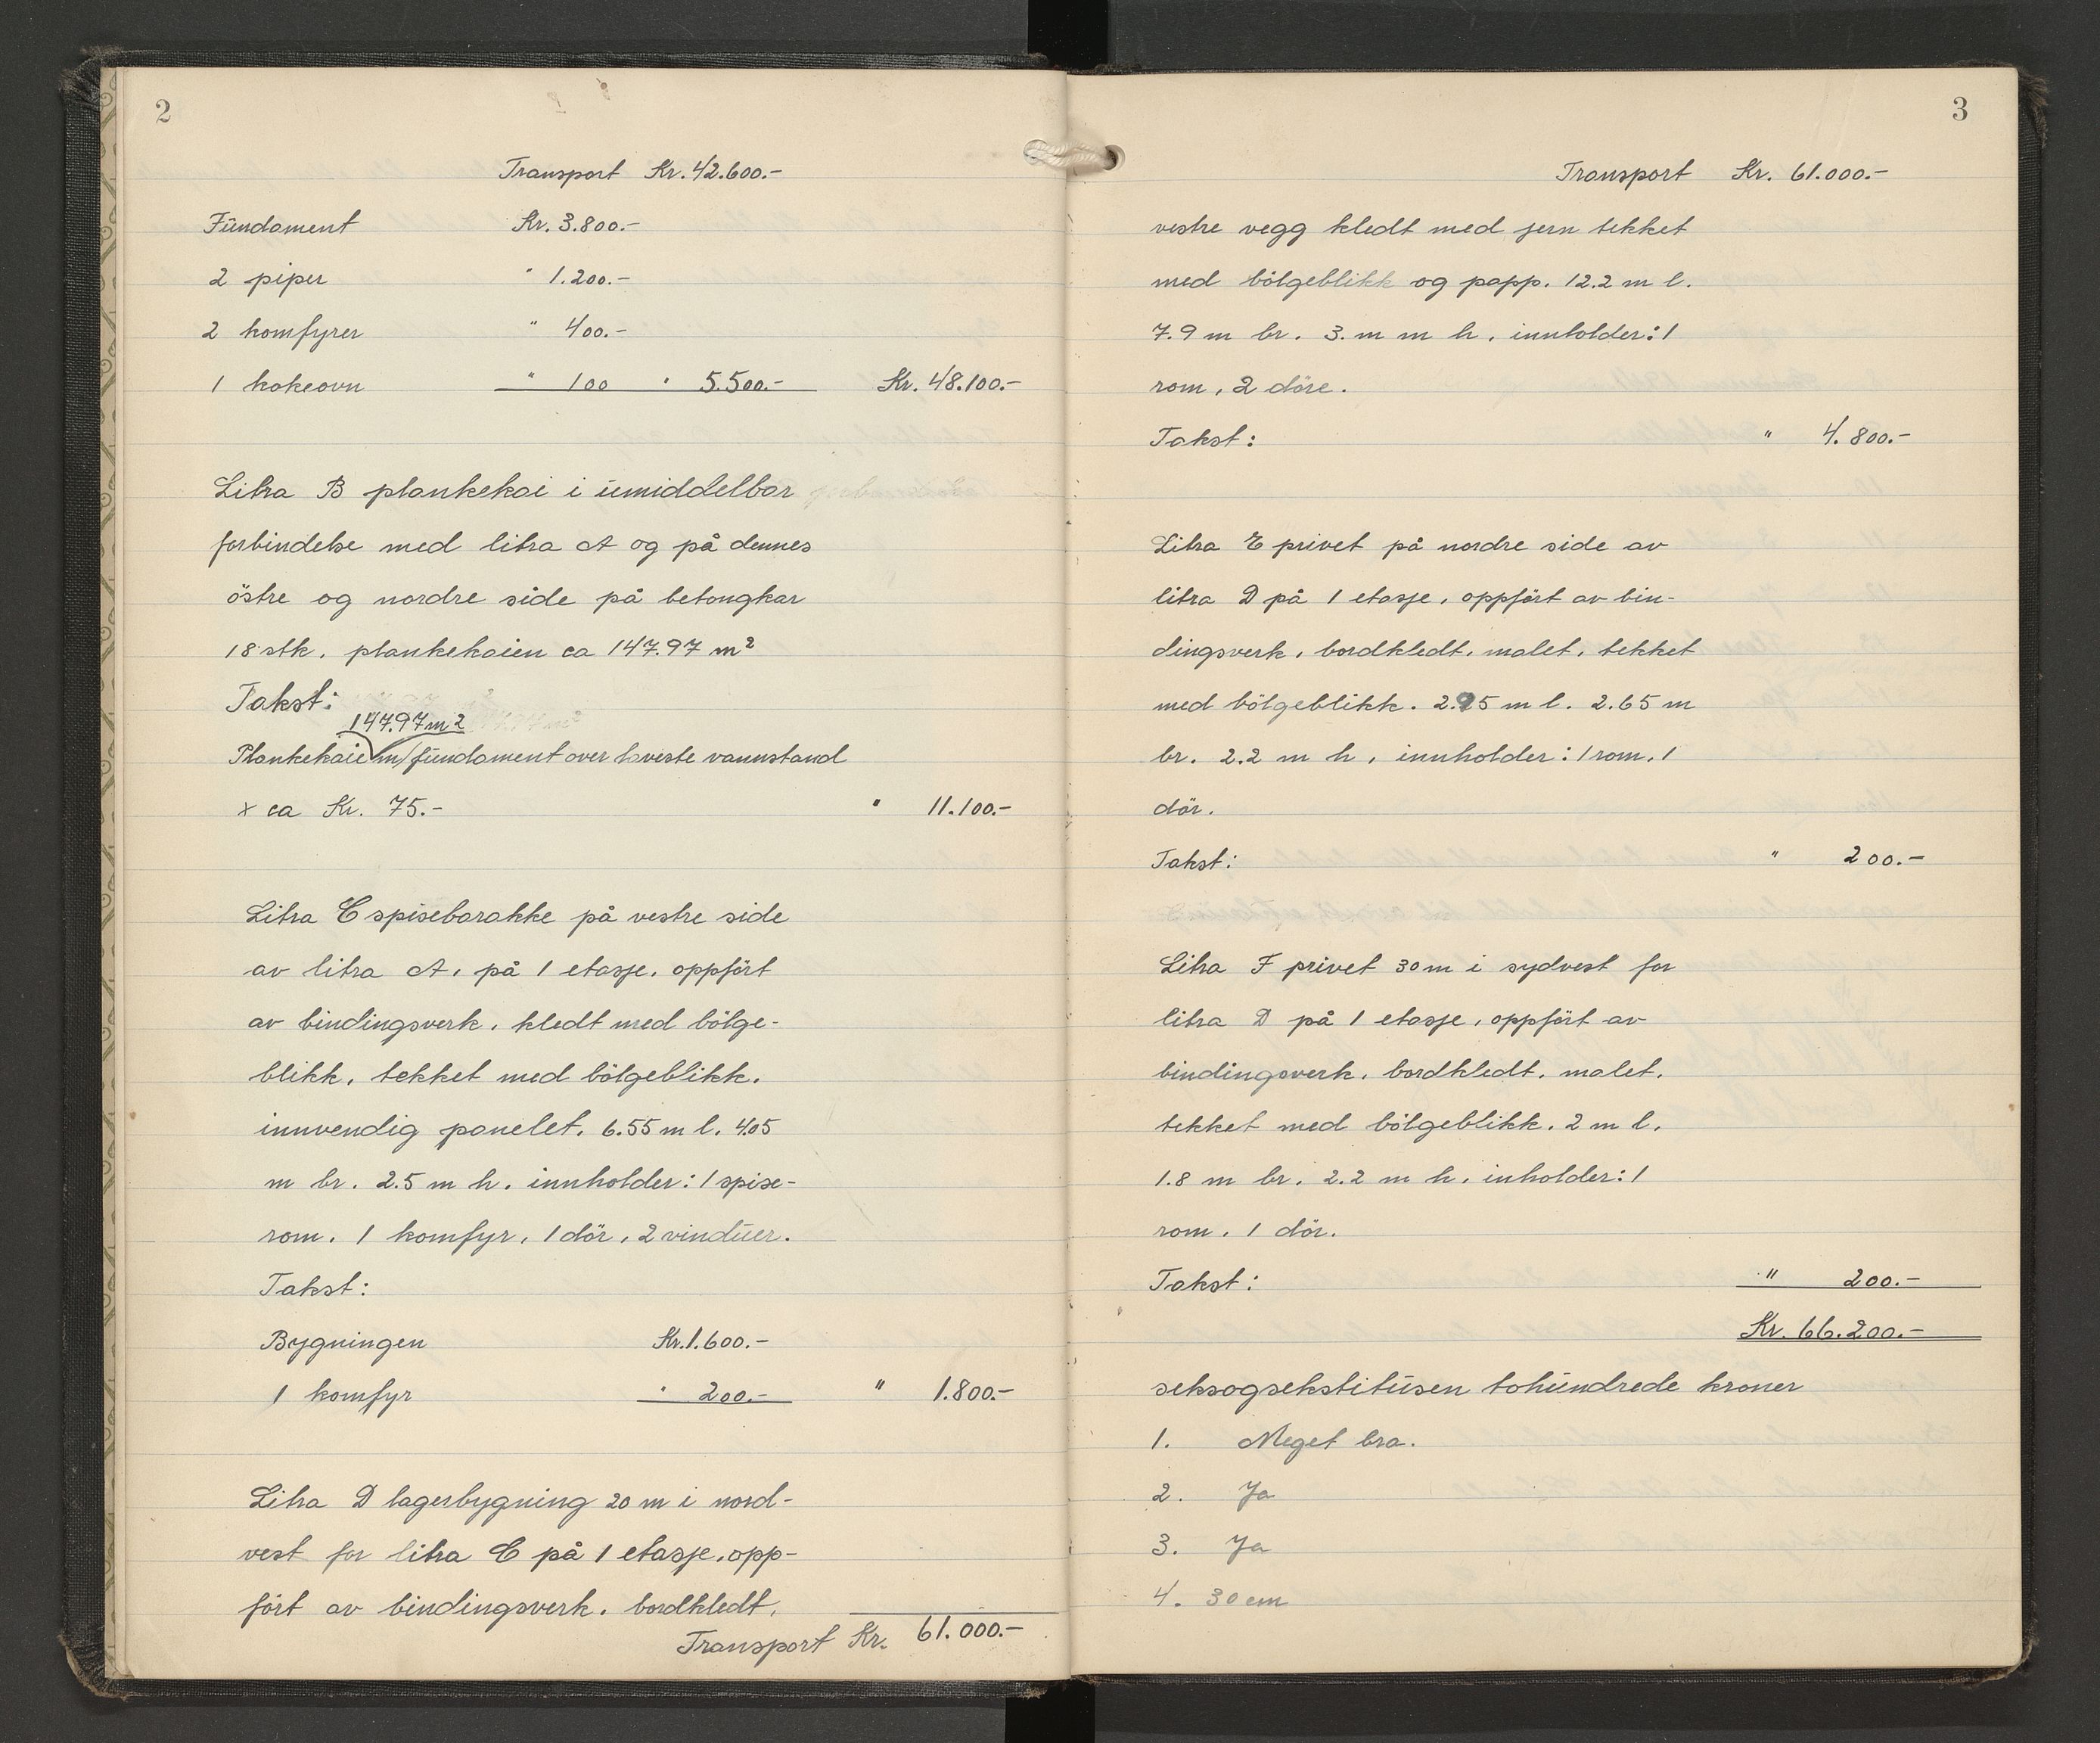 2
Transport Kr. 42.600.-
Fundament Kr. 3.800.-
2 piper " 1.200.-
2 komfyrer " 400.-
1 kokeovn " 100 " 5.500.- Kr. 48.100.-
Litra B plankekai i umiddelbar
forbindelse med litra A og på dennes
östre og nordre side på betongkar
18 stk. plankekaien ca 147.97 m²
Takst:
147.97 m2
Plankekaie m/fundament over laveste vannstand
x ca Kr. 75.- " 11.100.-
Litra C spisebarakke på vestre side
av litra A, på 1 etasje, oppfört
av bindingsverk, kledt med bölge-
blikk, tekket med bölgeblikk,
innvendig panelet. 6.55 m l. 4.05
m br. 2.5 m h. innholder: 1 spise-
rom. 1 komfyr, 1 dör, 2 vinduer.
Takst:
Bygningen Kr. 1.600.-
1 komfyr " 200.- " 1.800.-
Litra D lagerbygning 20 m i nord-
vest for litra C på 1 etasje, opp-
fört av bindingsverk, bordkledt,
Transport Kr. 61.000.-
3
Transport Kr. 61.000.-
vestre vegg kledt med jern tekket
med bölgeblikk og papp. 12.2 m l.
7.9 m br. 3. m m h, innholder: 1
rom, 2 döre.
Takst: " 4.800.-
Litra E privet på nordre side av
litra D på 1 etasje, oppfört av bin-
dingsverk, bordkledt, malet, tekket
med bölgeblikk. 2.95 m l. 2.65 m
br. 2.2 m h, innholder: 1 rom, 1
dör.
Takst: " 200.-
Litra F privet 30 m i sydvest for
litra D på 1 etasje, oppfört av
bindingsverk, bordkledt, malet,
tekket med bölgeblikk. 2 m l.
1.8 m br. 2.2 m h, inholder: 1
rom. 1 dör.
Takst: " 200.-
Kr. 66.200.-
seksogsekstitusen tohundrede kroner
1. Meget bra.
2. Ja
3. Ja
4. 30 cm